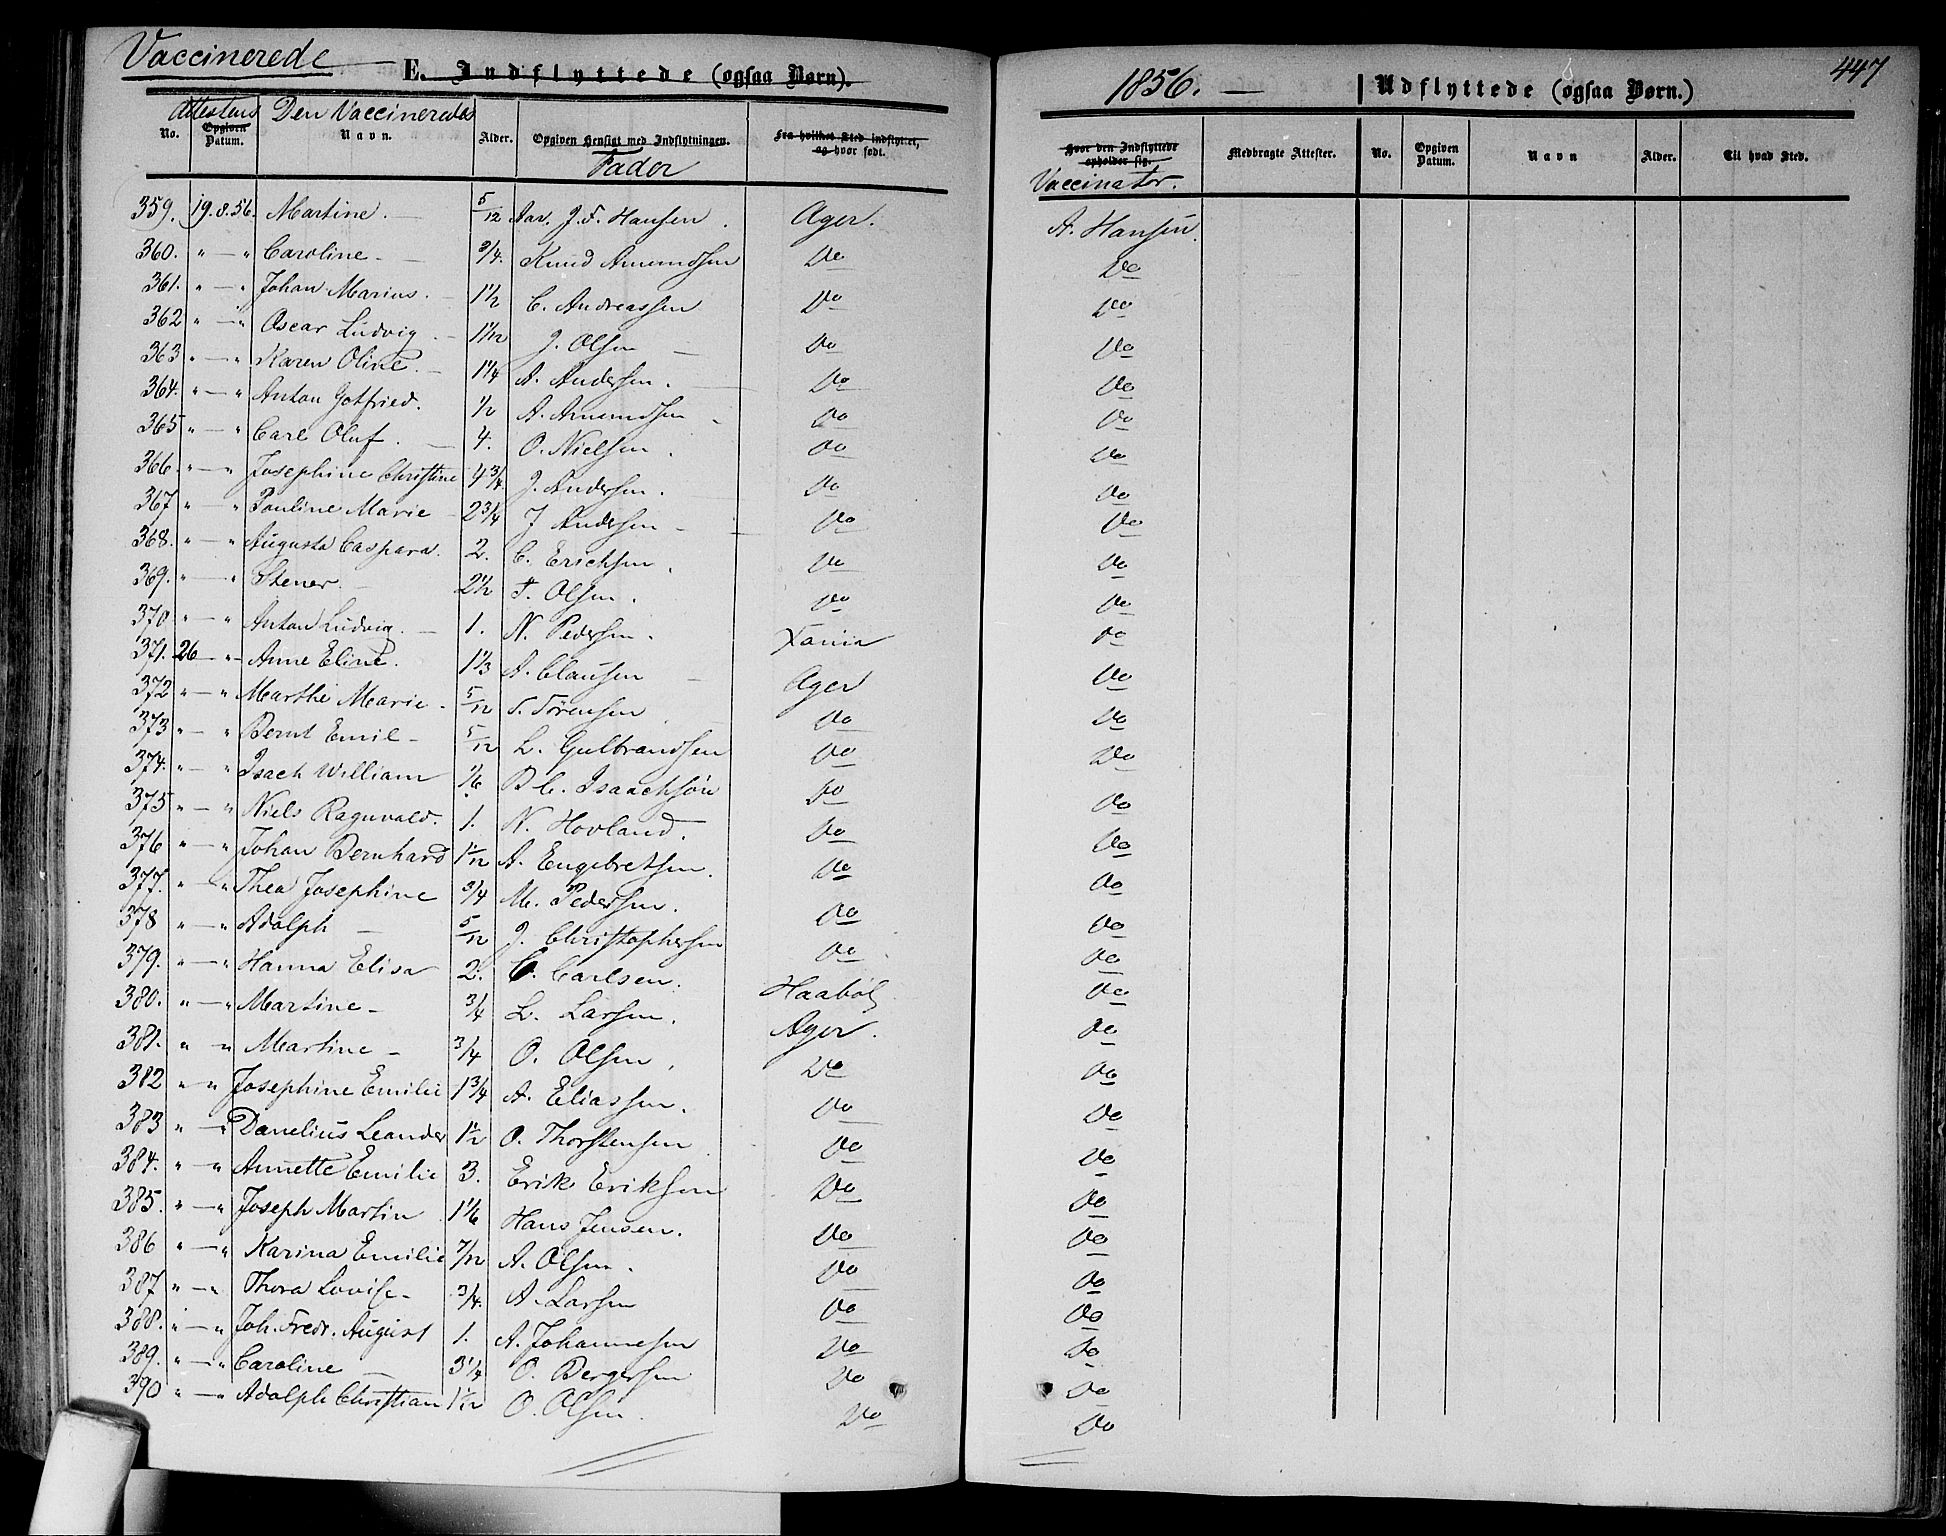 Vaccinerede E. Indflyttede (ogsaa Børn). 1856. — Udflyttede (ogsaa Børn.) 447
No. Attestens Opgiven Datum. Den Vaccineredes Navn. Alder. Opgiven Hensigt med Indflytningen. Fader Fra hvilket Sted indflyttet, og hvor født. Hvor den Indflyttede opholder sig. Vaccinator. Medbragte Attester. No. Opgiven Datum. Navn Alder. Til hvad Sted.
359. 19.8.56. Martine. — 5/12 J. F. Hansen. Ager. A. Hansen.
360. " — " Caroline. — 3/4. Knud Amundsen Do Do
361. " — " Johan Marius. — 1 1/2 C. Andreassen Do Do
362 " — " Oscar Ludvig. — 1 1/12 J. Olsen — Do Do
363 " — " Karen Oline. — 1 1/4 A. Andersen. Do Do
364. " — " Anton Gotfried. 1/2 A. Amundsen Do Do
365 " — " Carl Oluf. — 4. O. Nielsen. Do Do
366. " — " Josephine Christine 4 3/4. J. Andersen. Do Do
367 " — " Pauline Marie — 2 3/4 J Andersen — Do Do
368. " — " Augusta Caspara. 2. C. Erichsen. Do Do
369. " — " Stener. — 2 1/2 T. Olsen. Do Do
370 " — " Anton Ludvig. — 1. N. Pedersen. Xania Do
371. 26 — " Anne Eline. 1 1/3 A. Clausen — Ager Do
372 " — " Marthe Marie. 5/12 S. Sörensen Do Do
373 " — " Bernt Emil — 5/12 L. Gulbrandsen Do Do
374. " — " Isach William 1/6 B C. Isaachsön Do Do
375 " — " Niels Ragnvald. 1. N. Hovland. Do Do
376 " — " Johan Bernhard 1 1/12 A. Engebretsen. Do Do
377. " — " Thea Josephine 3/4 M. Pedersen. Do Do
378 " — " Adolph — 5/12 J. Christophersen Do Do
379. " — " Hanna Elisa 2. C. Carlsen. Haaböl Do
380. " — " Martine — 3/4 L. Larsen. Ager. Do
381. " " Martine — 3/4 O. Olsen. Do Do
382 " " Josephine Emilie 1 3/4 A. Eliassen. Do Do
383 " — " Danelius Leander 1 1/2 O. Thorstensen Do Do
384. " — " Annette Emilie 3. Erik Eriksen Do Do
385. " — " Joseph Martin 1 1/6 Hans Jensen. Do Do
386 " — " Karina Emilie 7/12 A. Olsen. Do Do
387 " — " Thora Lovise — 3/4. A. Larsen Do Do
388. " — " Joh. Fredr. August 1. A. Johannesen Do Do
389. " — " Caroline — 3 1/4 O. Bergersen Do Do
390 " — " Adolph Christian 1 1/12 O. Olsen. Do Do